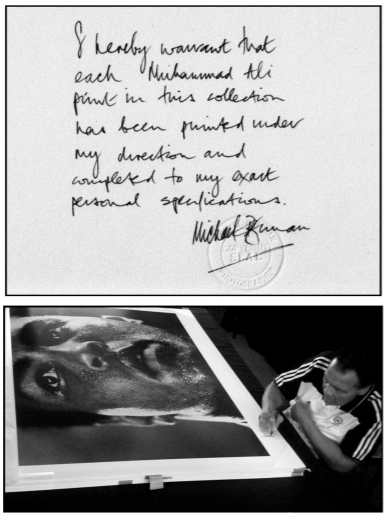 I hereby warrant that
each Muhammad Ali
print in this collection
has been printed under
my direction and
completed to my exact
personal specifications.
Michael
SEAL